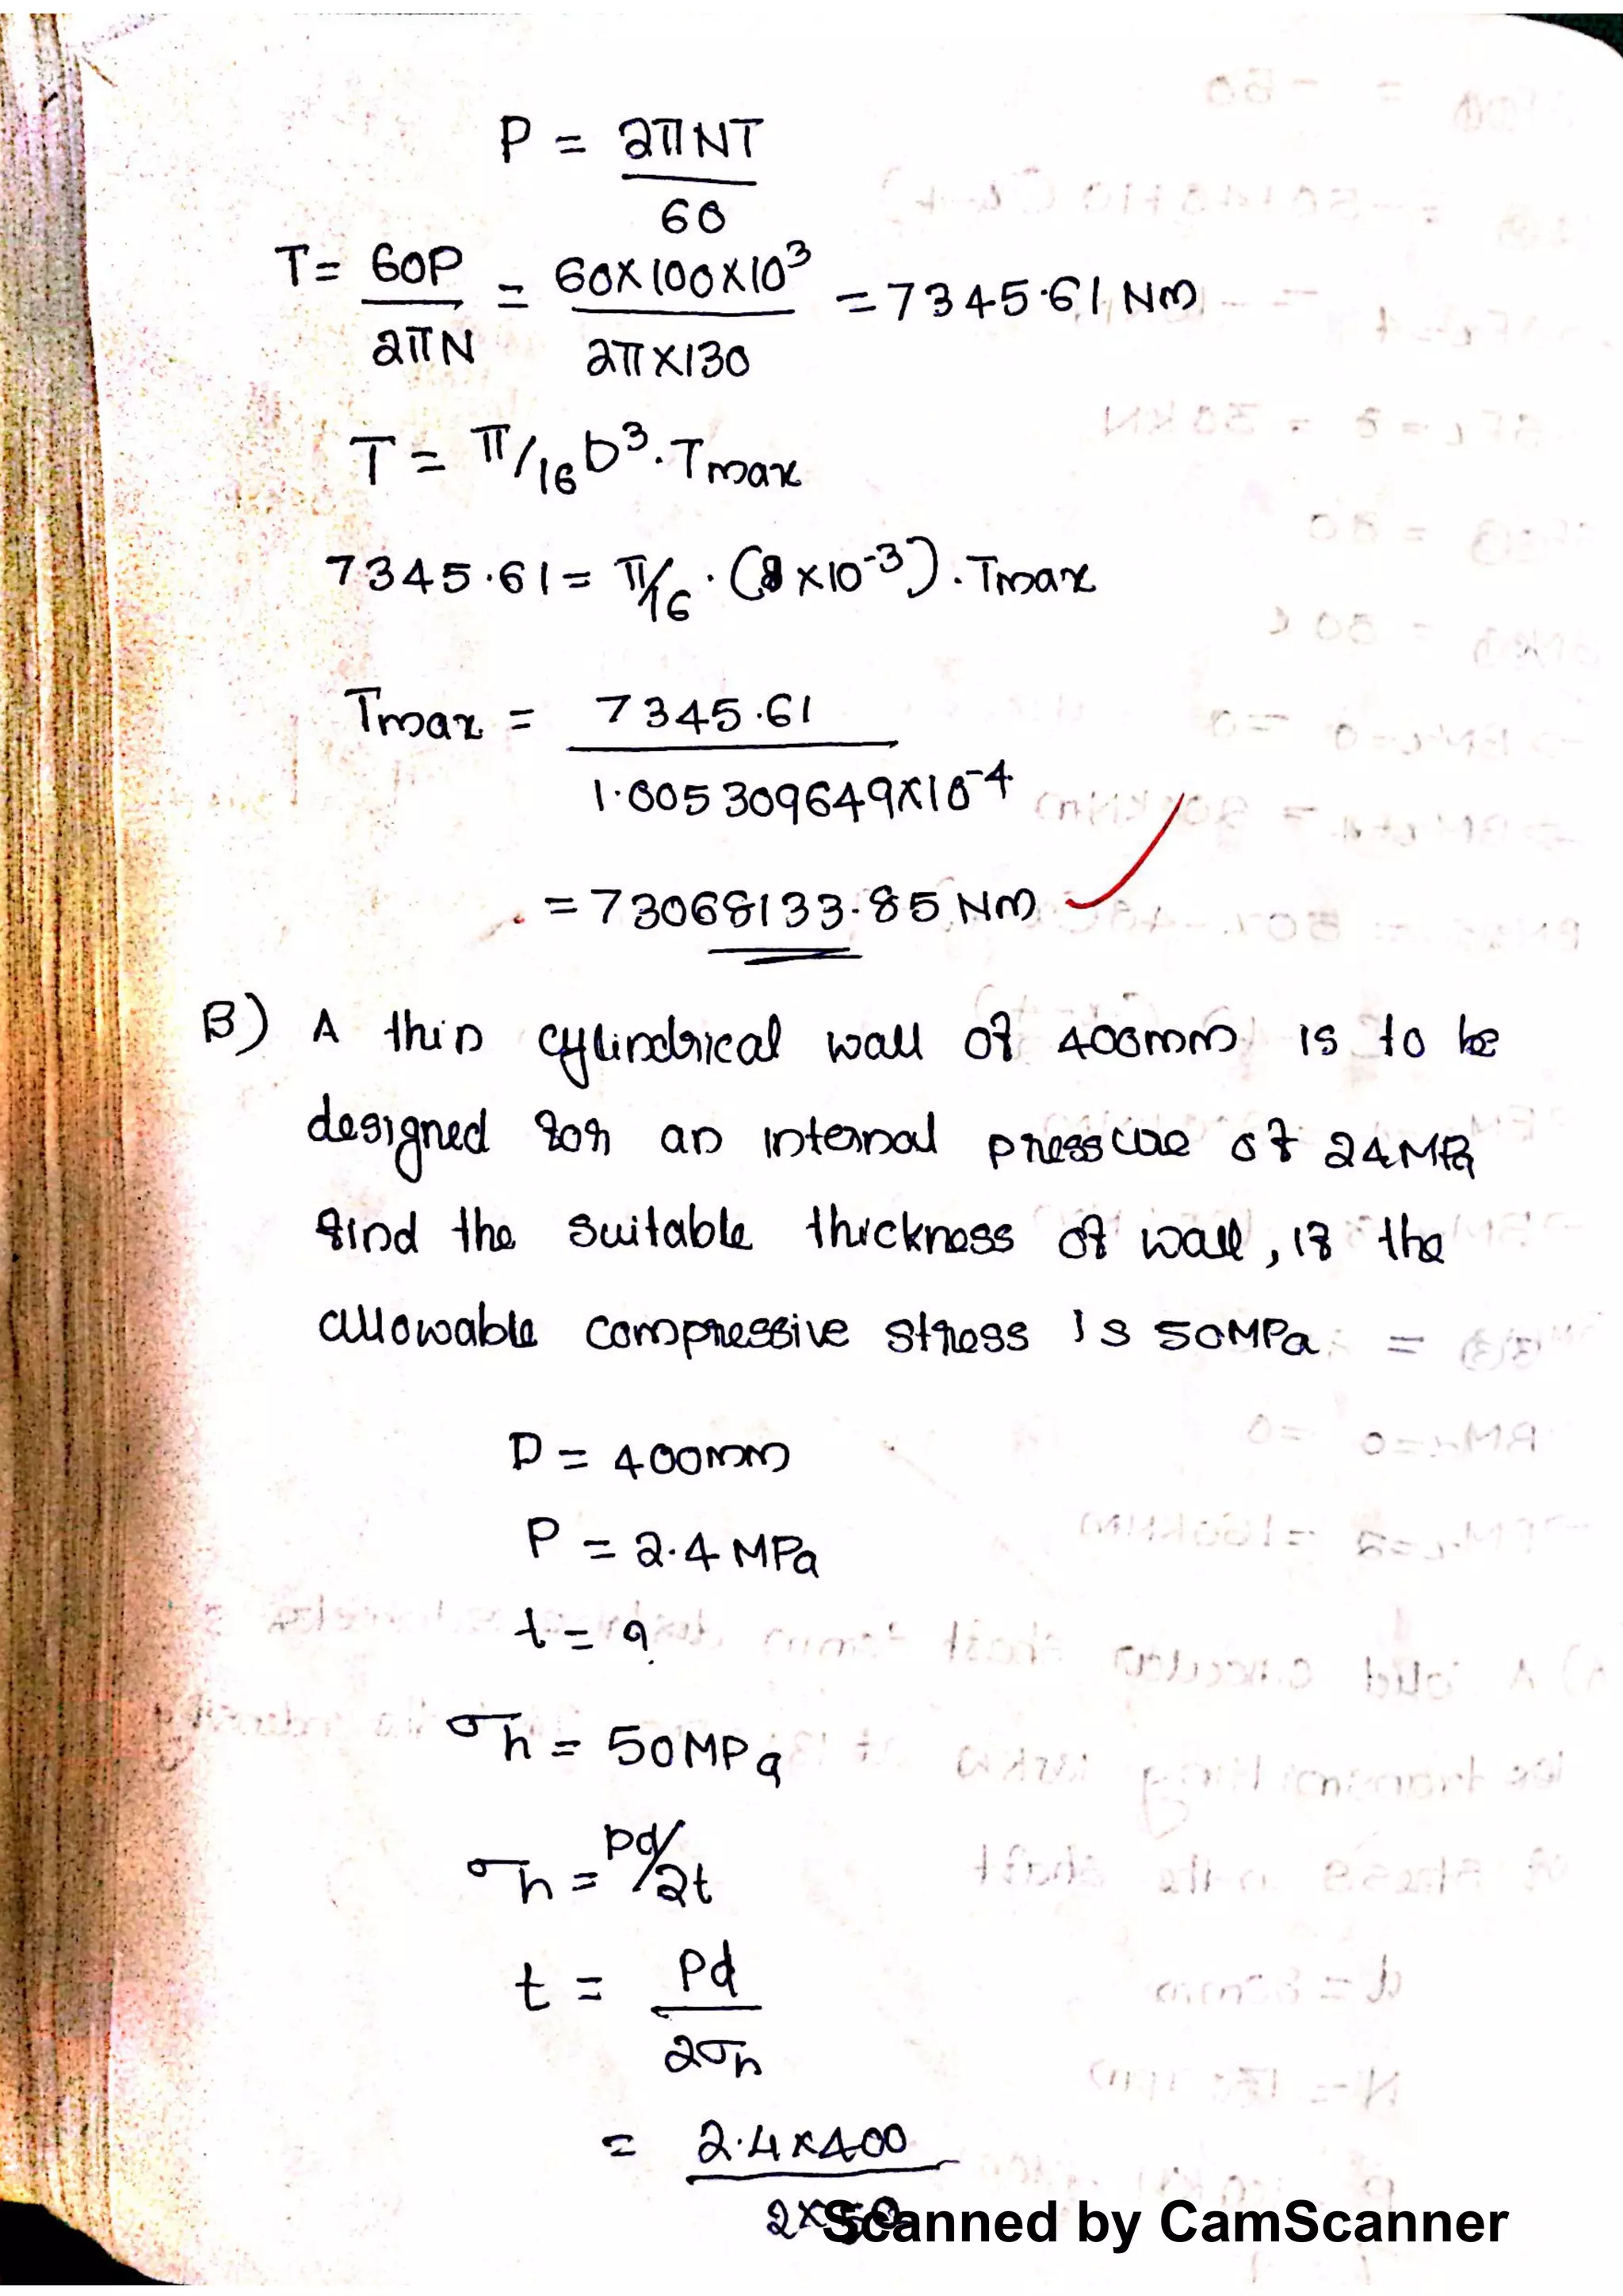 P = 2πNT
60
T = 60P / 2πN = 60×100×10³ / 2π×130 = 7345.61 Nm
T = π/16 D³. Tmax
7345.61 = π/16 . (8×10⁻³) . Tmax
Tmax = 7345.61
1.005309649×10⁻⁴
= 73068133.85 Nm
B) A thin cylindrical wall of 400mm is to be
designed for an internal pressure of 24MPa
find the suitable thickness of wall, if the
allowable compressive stress is 50MPa
D = 400mm
P = 2.4 MPa
t = ?
σh = 50MPa
σh = Pd/2t
t = Pd
2σh
= 2.4×400
2×50
Scanned by CamScanner